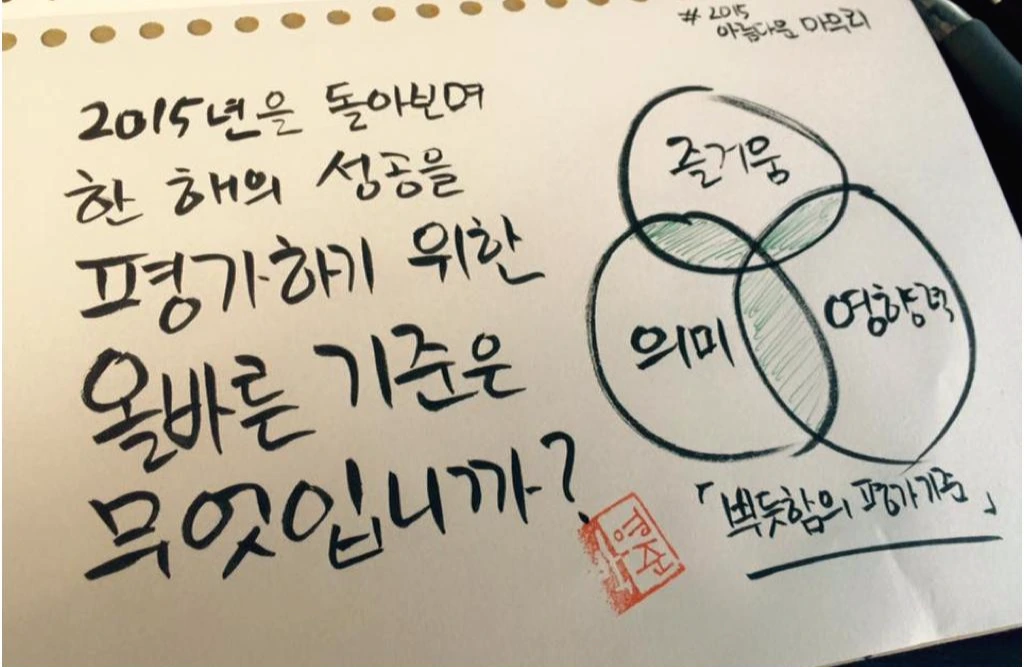 #2015
아름다운 마무리
2015년을 돌아보며
한 해의 성공을
평가하기 위한
올바른 기준은
무엇입니까?
즐거움
의미
영향력
「뿌듯함의 평가기준」
영
준